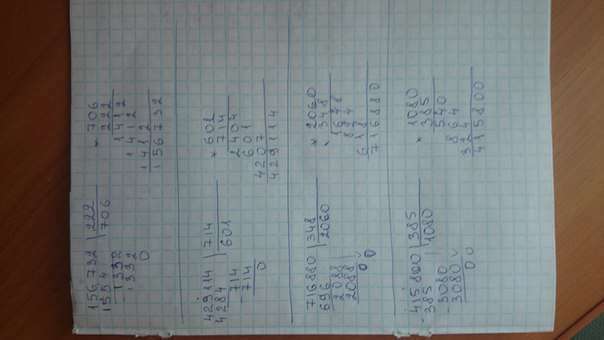 156732 | 222 × 706
- 1554 | 706 222
- 1332 1412
1332 1412
0 1412
156732
429114 | 714 × 601
4284 | 601 714
- 714 2404
714 601
0 4207
429114
716880 | 348 × 2060
696 | 2060 348
- 2088 1648
2088 824
0 0 618
716880
- 415800 | 385 × 1080
385 | 1080 385
- 3080 540
3080 864
0 0 324
415800